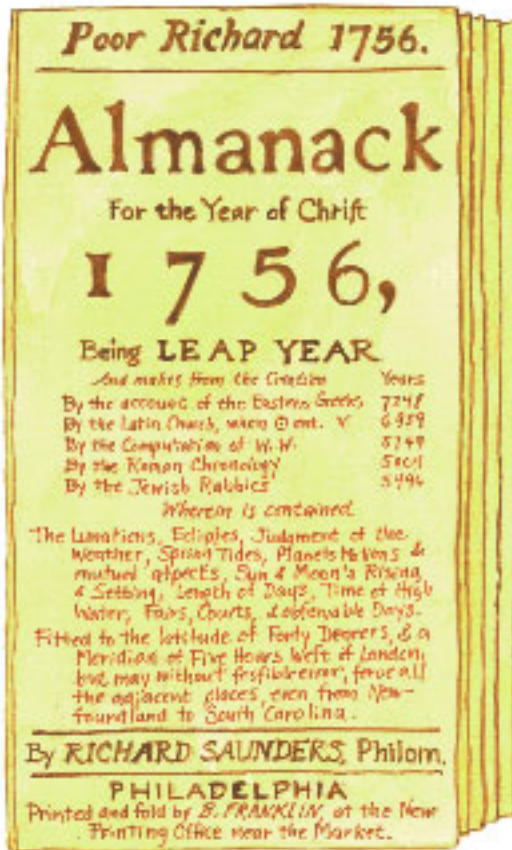 Poor Richard 1756.
Almanack
For the Year of Chrift
1756,
Being LEAP YEAR
And makes from the Creation Years
By the account of the Eastern Greeks 7248
By the Latin Church, when ☉ ent. ♈ 6959
By the Computation of W.W. 5749
By the Roman Chronology
By the Jewish Rabbies 5496
Wherein is contained
The Lunations, Eclipses, Judgment of the
Weather, Spring Tides, Planets Motions &
mutual aspects, Sun & Moon's Rising
& Setting, Length of Days, Time of High
Water, Fairs, Courts, & obfervable Days.
Fitted to the latitude of Forty Degrees, & a
Meridian of Five Hours Weft of London,
but may without fenfible error, ferve all
the adjacent places, even from New-
foundland to South Carolina.
By RICHARD SAUNDERS, Philom.
PHILADELPHIA
Printed and fold by B. FRANKLIN, at the New
Printing Office near the Market.